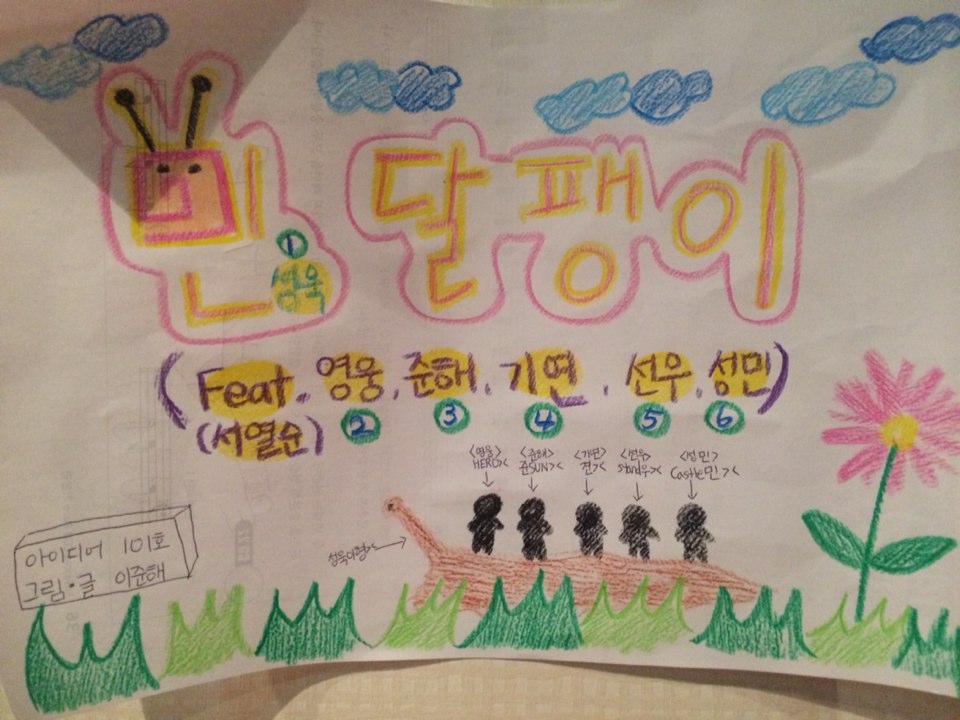 민 달팽이
① 성욱
(Feat. 영웅, 준해, 기연, 선우, 성민)
(서열순) ② ③ ④ ⑤ ⑥
<영웅> <준해> <기연> <선우> <성민>
HERO>< 준SUN>< 견>< stand우>< Castle민><
성욱이형
아이디어 101호
그림·글 이준해